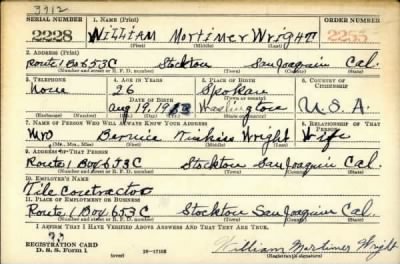 3912
SERIAL NUMBER 1. NAME (Print) ORDER NUMBER
2228 William Mortimer Wright 2255
(First) (Middle) (Last)
2. ADDRESS (Print)
Route 1 Box 653C Stockton San Joaquin Cal.
(Number and street or R. F. D. number) (Town) (County) (State)
3. TELEPHONE 4. AGE IN YEARS 5. PLACE OF BIRTH 6. COUNTRY OF CITIZENSHIP
None 26 Spokan
DATE OF BIRTH (Town or county)
Aug 19 Washington U.S.A.
(Mo.) (Day) (Yr.) (State or country)
7. NAME OF PERSON WHO WILL ALWAYS KNOW YOUR ADDRESS 8. RELATIONSHIP OF THAT PERSON
Mrs Wright Wife
(Mr., Mrs., Miss) (First) (Middle) (Last)
9. ADDRESS OF THAT PERSON
Route 1 Box 653C Stockton San Joaquin Cal.
(Number and street or R. F. D. number) (Town) (County) (State)
10. EMPLOYER'S NAME
Tile Contractor
11. PLACE OF EMPLOYMENT OR BUSINESS
Route 1 Box 653C Stockton San Joaquin Cal.
(Number and street or R. F. D. number) (Town) (County) (State)
I AFFIRM THAT I HAVE VERIFIED ABOVE ANSWERS AND THAT THEY ARE TRUE.
REGISTRATION CARD William Mortimer Wright
D. S. S. Form 1 (over) 16—17105 (Registrant's signature)